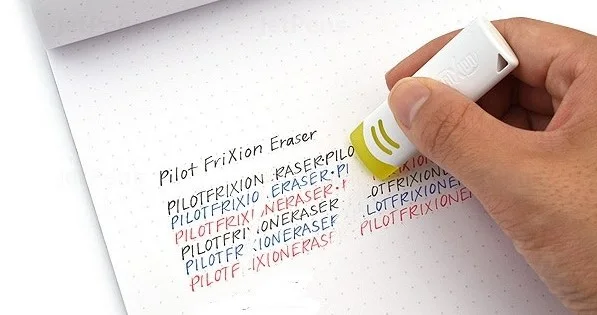 Pilot FriXion Eraser
PILOTFRIXION .RASER•PILO
PILOTFRIXIO .ERASER•PI
PILOTFRIXI NERASER• .OTFRIXION
PILOTFRI .ONERASER .LOTFRIXIONE
PILOTFR .IONERASE PILOTFRIXIONE
PILOTF .IXIONERASE